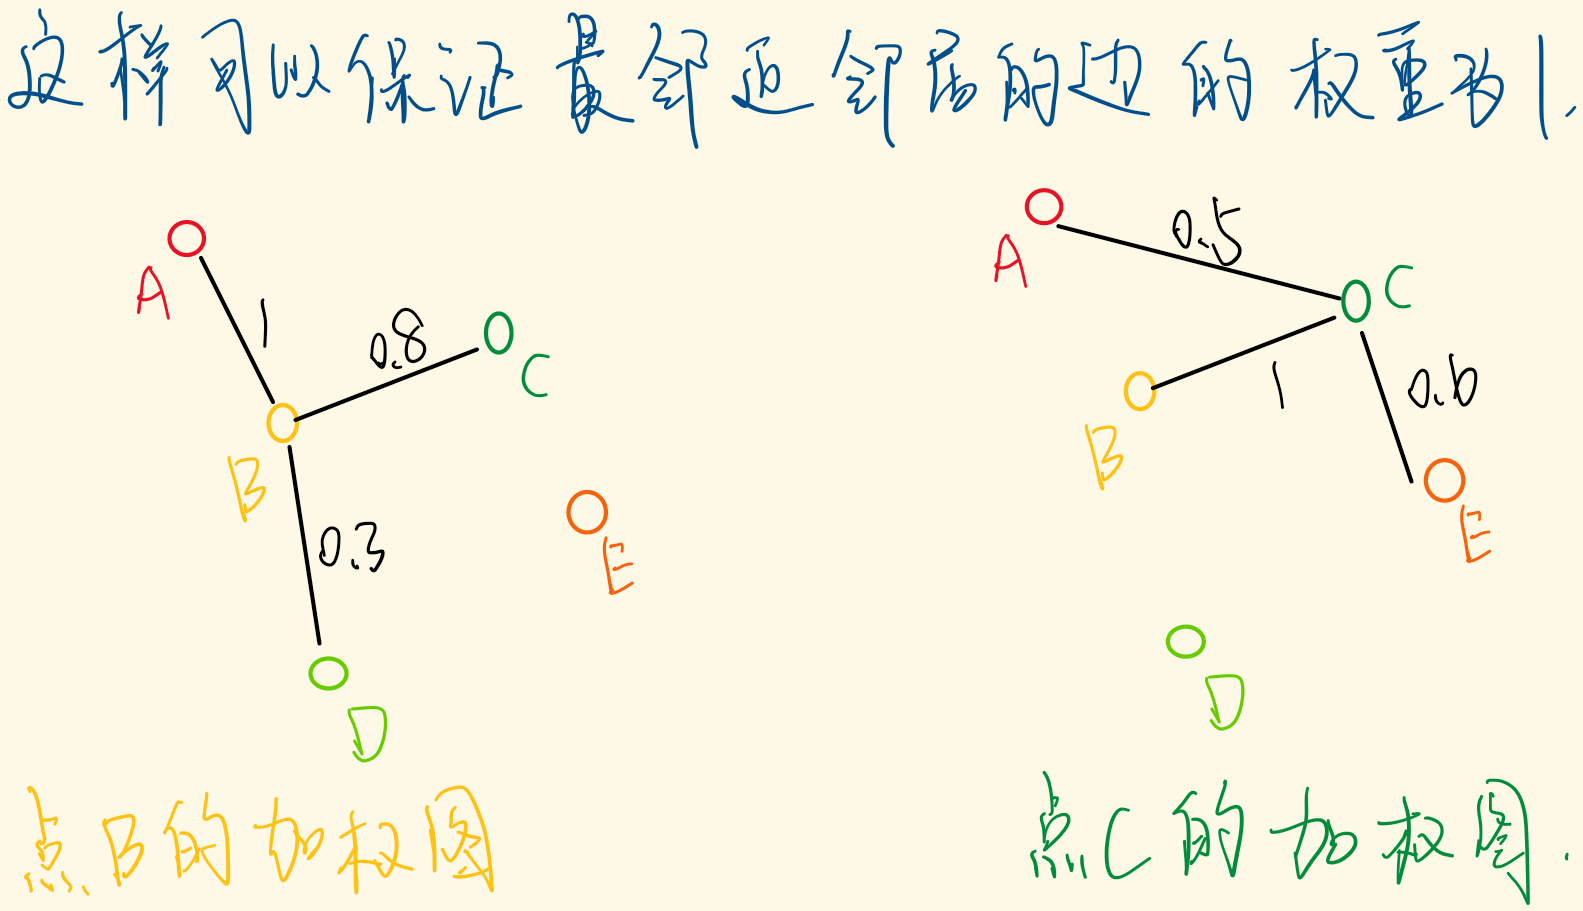 这样可以保证最邻近邻居的边的权重为1.
A
1
0.8
C
B
0.3
E
D
点B的加权图
A
0.5
C
B
1
0.6
E
D
点C的加权图.